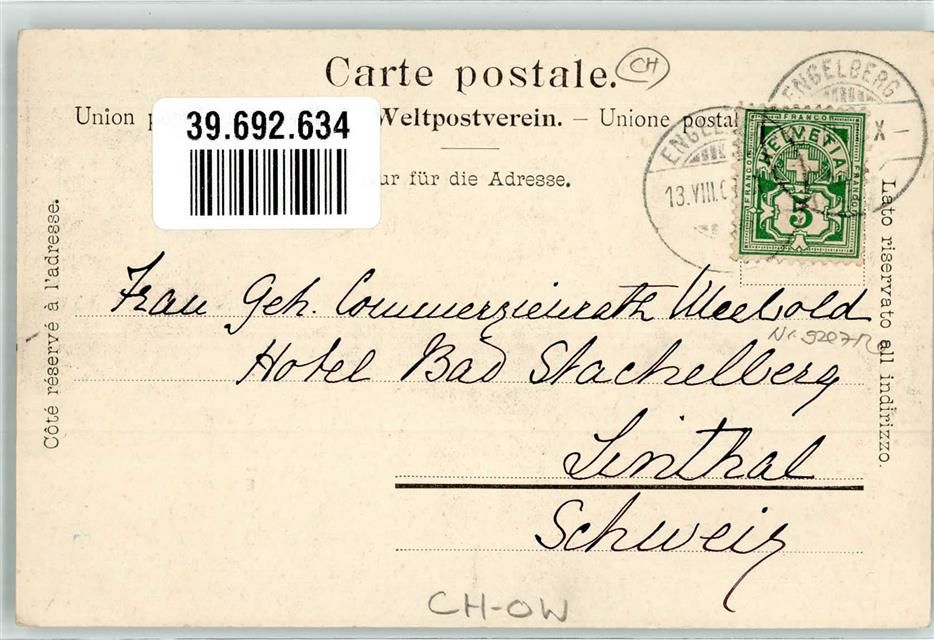 Carte postale. CH
Union Weltpostverein. – Unione postal
39.692.634
ur für die Adresse.
ENGELBERG
X –
ENGEL
13.VIII.0
FRANCO
FRANCO
FRANCO
HELVETIA
5
Côté réservé à l'adresse.
Lato riservato all indirizzo.
Frau Geh. Commerzienrath Meebold
Nr. 9207
Hotel Bad Stachelberg
Linthal
Schweiz
CH-OW